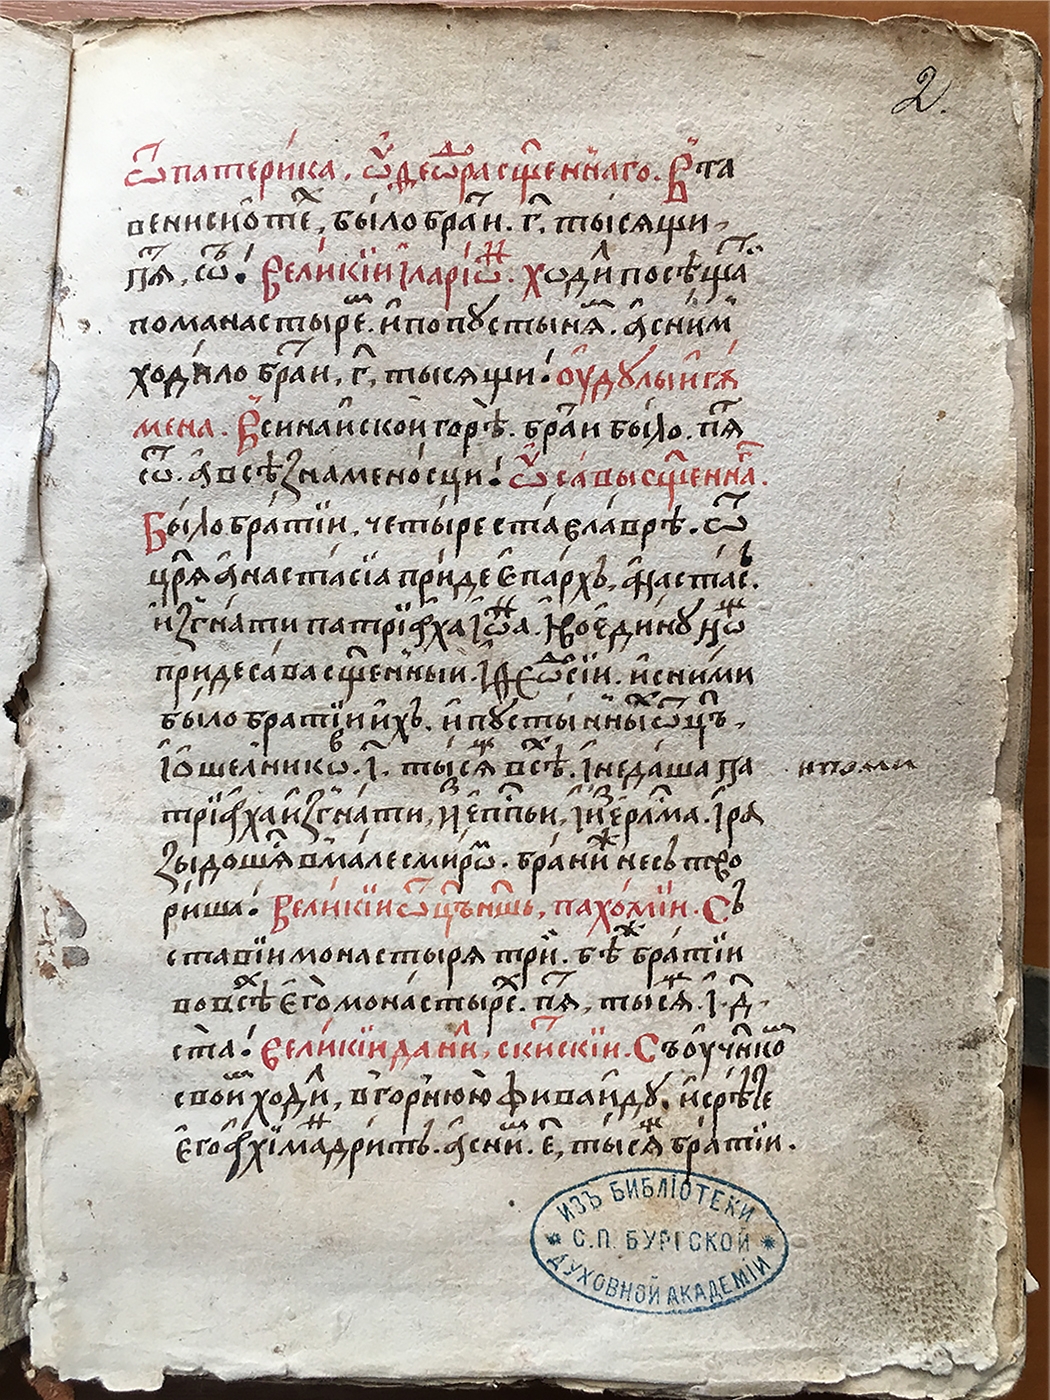 2.
Ѿ патерика. Ѿ деѡдѡра сщ҃еннаго. В та
венисиѻтѣ, было братїи. г҃, тысящи.
пят, сот! Великїи їларїѡн. ходил посѣщат
по манастырем. и по пустыням. а с ним
ходило братїи, г҃, тысящи! оу дулы игꙋ
мена. В синайской горѣ. братїи было. пят
сот. а всѣ знаменосцы! Ѿ савы сщ҃еннаг.
Было братїи, четыреста в лаврѣ. Ѿ
цр҃я анастасїа прииде епархъ, анастас.
изгнати патрїарха їѡанна. Ко единꙋ нощ
прииде сава сщ҃енный. И феѡдосїи. и с ними
было братїи ихъ. и пустынных ѿцъ,
і ѿшелников. і҃. тысящ всѣх. і не даша па
трїарха изгнати, из епп҃ьи, и из ерлⷭ҇ма. і ра
зыдошася в мале с миром. брани ж не сътво
риша! Великїи ѿцъ нш҃ь, пахомїи. Съ
ставїи монастыря три. бѣ ж братїи
во всѣх его монастырех. пят, тысящ. і д҃.
ста! Великїи данїил, скитскїи. Съ оученикомъ
своим ходил, в горнюю фиваиду. и срѣте
его архімандритъ. а с ним. е҃, тысящ братїи.
ИЗЪ БИБЛІОТЕКИ
С.П. БУРГСКОЙ
ДУХОВНОЙ АКАДЕМІИ